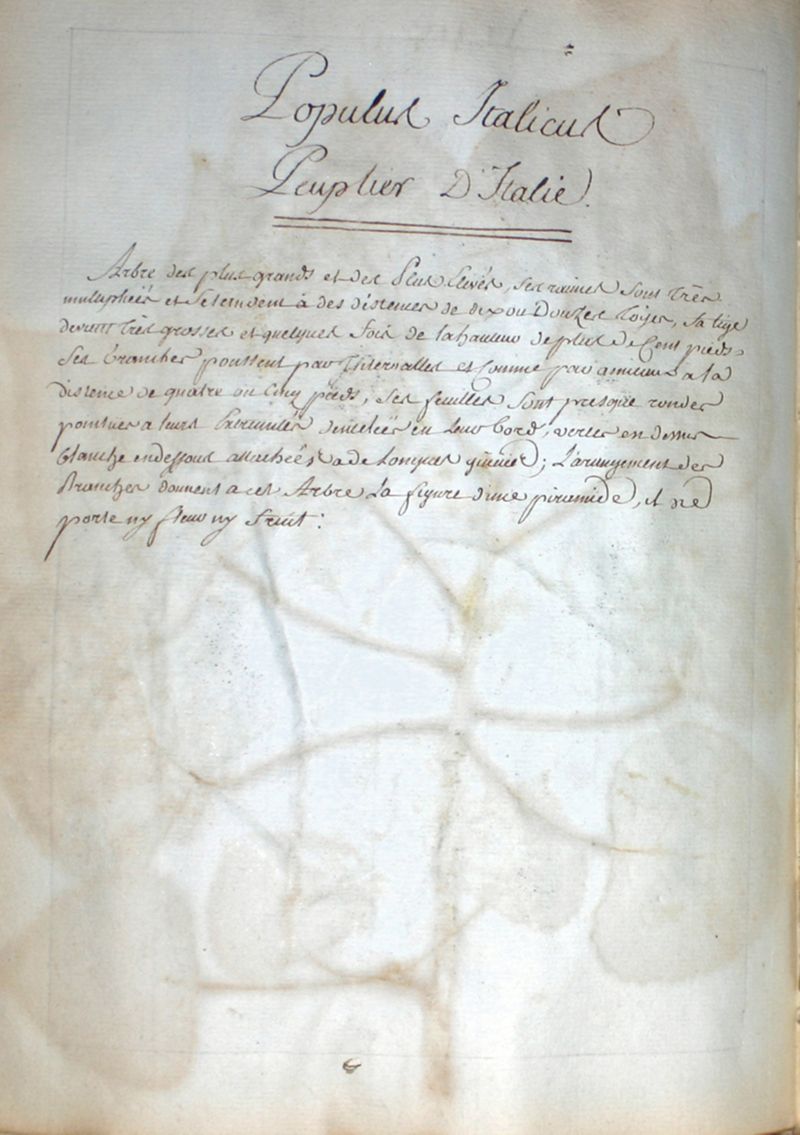 Populus Italicus
Peuplier D'Italie.
Arbre des plus grands et des Plus Elevés, ses racines sont Très
multipliées et S'etendent à des distences de dix ou Douzes Toises, sa tige
devient Très grosses et quelques fois de la hauteur de plus de Cent pieds.
Ses branches poussent par Internalles et comme par a la
distence de quatre ou Cinq pieds, ses feuilles sont presque rondes
pointues a leurs Extremités dentelées en leur bord, vertes en dessus
blanche en dessous attachées a de Longues ; L'arangement des
Branches donnent a cet Arbre La figure d'une piramide, il ne
porte ny fleur ny fruit :